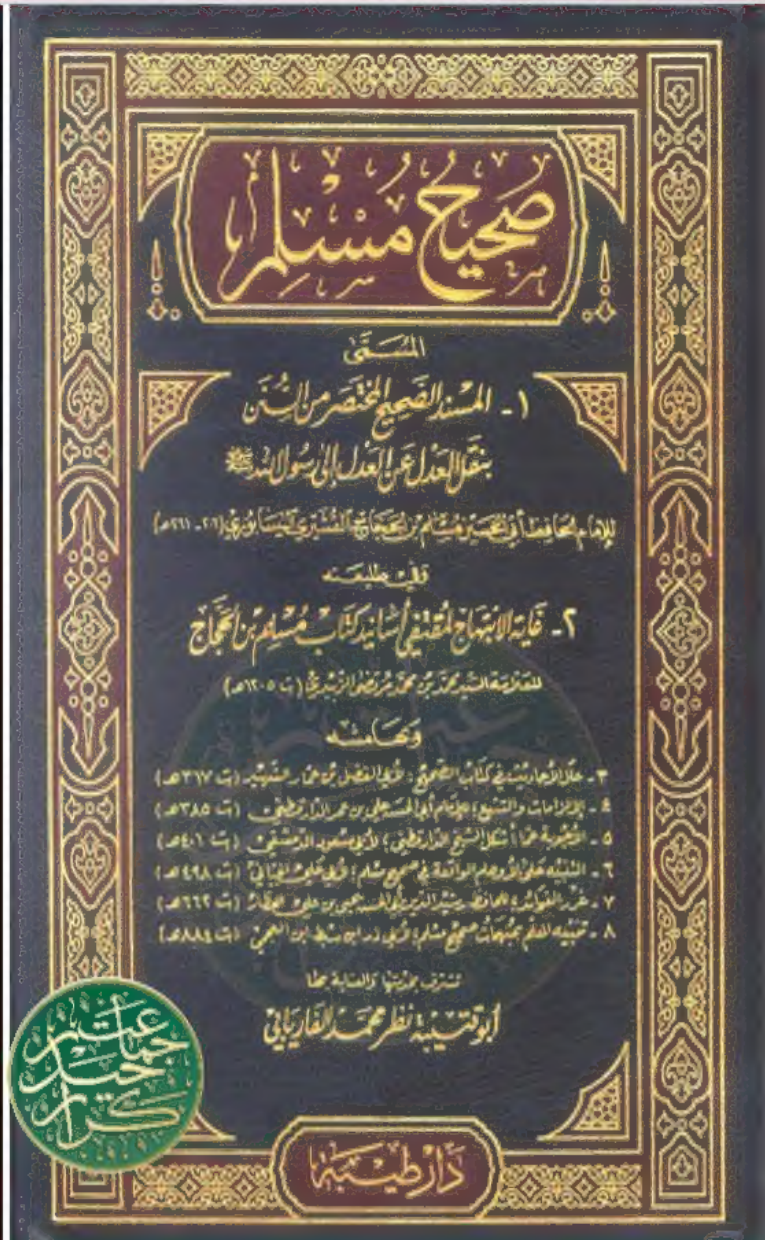 صَحِيحُ مُسْلِمْ
المُسَمَّى
١ - المسند الصحيح المختصر من السنن
بنقل العدل عن العدل إلى رسول الله ﷺ
للإمام الحافظ أبي الحسين مسلم بن الحجاج القشيري النيسابوري (٢٠٦ - ٢٦١هـ)
وفي طليعته
٢ - غاية الابتهاج لمقتفي أسانيد كتاب مسلم بن الحجاج
للعلامة السيد محمد بن محمد مرتضى الزبيدي (ت ١٢٠٥هـ)
وبهامشه
٣ - علل الأحاديث في كتاب الصحيح ؛ لأبي الفضل بن عمار الشهيد (ت ٣١٧هـ)
٤ - الإلزامات والتتبع ؛ للإمام أبو الحسن علي بن عمر الدارقطني (ت ٣٨٥هـ)
٥ - الأجوبة عما أشكل الشيخ الدارقطني ؛ لأبي مسعود الدمشقي (ت ٤٠١هـ)
٦ - التنبيه على الأوهام الواقعة في صحيح مسلم ؛ لأبي علي الجياني (ت ٤٩٨هـ)
٧ - غرر الفوائد ؛ للحافظ رشيد الدين أبو الحسين يحيى بن علي العطار (ت ٦٦٢هـ)
٨ - تنبيه المعلم بمبهمات صحيح مسلم ؛ لأبي ذر ابن سبط ابن العجمي (ت ٨٨٤هـ)
تشرف بخدمتها والعناية بها
أبو قتيبة نظر محمد الفاريابي
دار طيبة